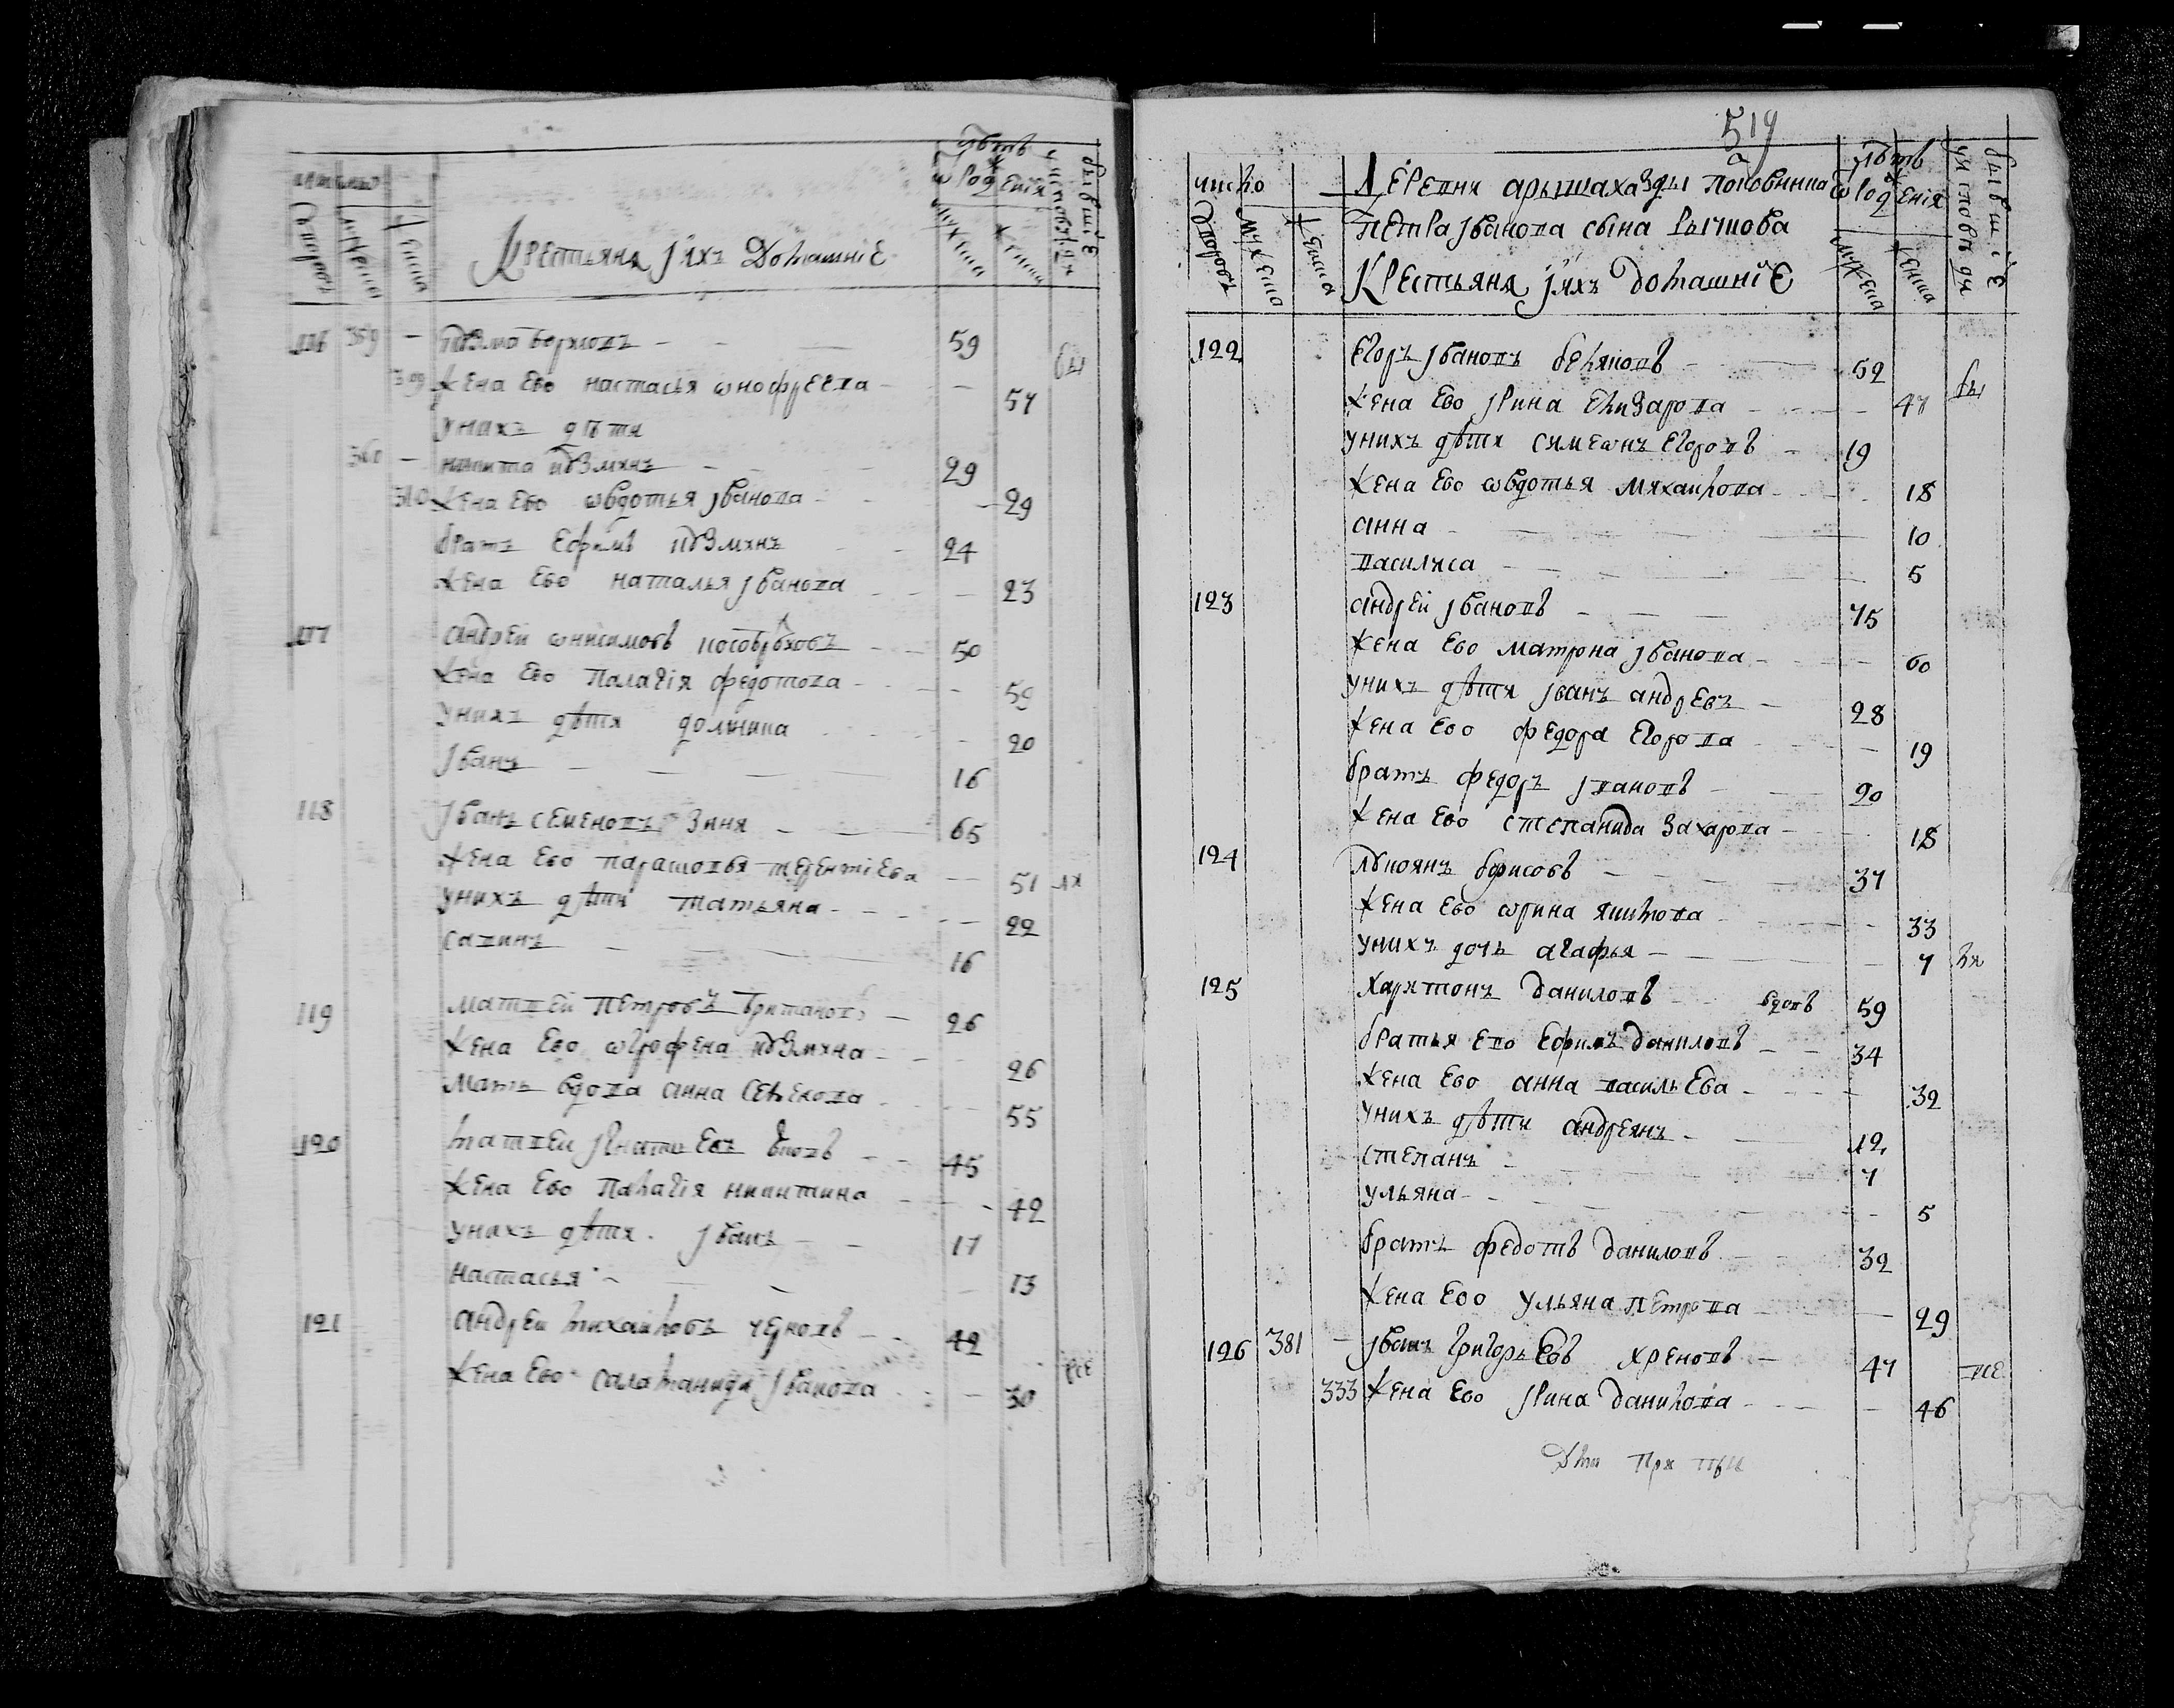 число
дворовъ
мужеска
женска
Крестьяня јихъ Домашніе
лѣтъ
ѿ рожденія
мужеска
женска
бывшіе
у исповѣди
116 359 — кузма — — 59
309 жена ево настасья ѡнофреева — — 57
бы
у нихъ дѣти
360 — никита кузминъ — 29
310 жена ево ѡвдотья јванова — — 29
братъ ефимъ кузминъ — — 24
жена ево наталья јванова — — — 23
117 андрей ѡнисимовъ — — 50
жена ево палагія федотова — — — 59
у нихъ дѣтя домника — 20
јванъ — — — — 16
118 јванъ семеновъ зиня — — 65
жена ево парасковья терентіева — 51
у нихъ дѣти татьяна — — — 22
савинъ — — — — 16
119 матвей петровъ — 26
жена ево ѡгрофена кузмина — — — 26
мать вдова анна — — 55
120 матвеи јгнатиевъ — — 45
жена ево палагія никитина — — - 42
у нихъ дѣтя. јванъ — — 17
настасья — — — 13
121 андреи михаиловъ черновъ — — 42
жена ево саломанида јванова — — 30
все
519
число
дворовъ
мужеска
женска
Деревни арышахазды половинка
Петра јванова сына рычкова
Крестьяня јихъ домашніе
лѣтъ
ѿ рожденія
мужеска
женска
бывшіе
у исповѣди
122 егоръ јвановъ беляковъ — — 52
бы
жена ево јрина елизарова — — — 47
у нихъ дѣтя симеѡнъ егоровъ — 19
жена ево ѡвдотья михаилова — — 18
анна — — — — 10
василиса — — — — 5
123 андрей јвановъ — — — 75
жена ево матрона јванова — — — 60
у нихъ дѣтя јванъ андревъ — 28
жена ево федора егорова — — — 19
братъ федоръ јвановъ — — 20
жена ево степанида захарова — — 18
124 лукоянъ борисовъ — — — 37
жена ево ѡрина — — 33
у нихъ дочь агафья — — — 7
ля
125 харитонъ даниловъ — вдовъ 59
братья ево ефимъ даниловъ — — 34
жена ево анна васильева — — — 32
у нихъ дѣти андреянъ — — 12
степанъ — — — 7
ульяна — — — — 5
братъ федотъ даниловъ — — 32
жена ево ульяна петрова — — 29
126 381 — јванъ григорьевъ хреновъ — 47
все
333 жена ево јрина данилова — — — 46